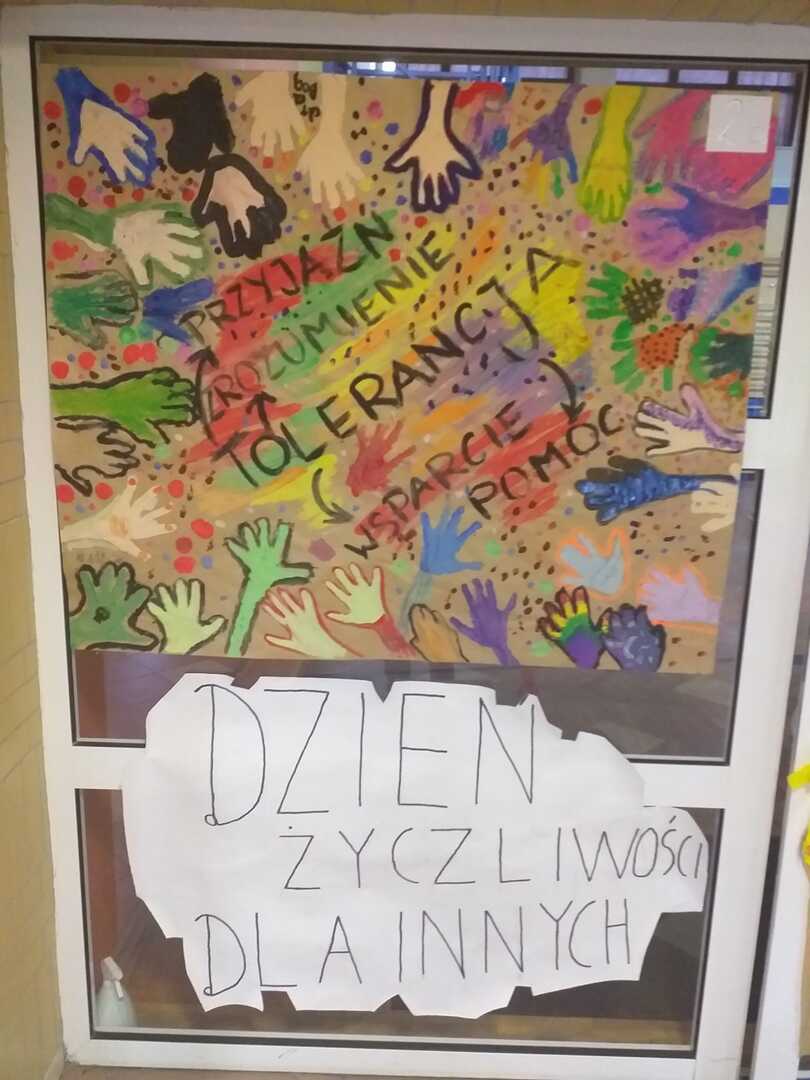 PRZYJAŹN
ZROZUMIENIE
TOLERANCJA
WSPARCIE
POMOC
DZIEN
ŻYCZLIWOŚCI
DLA INNYCH